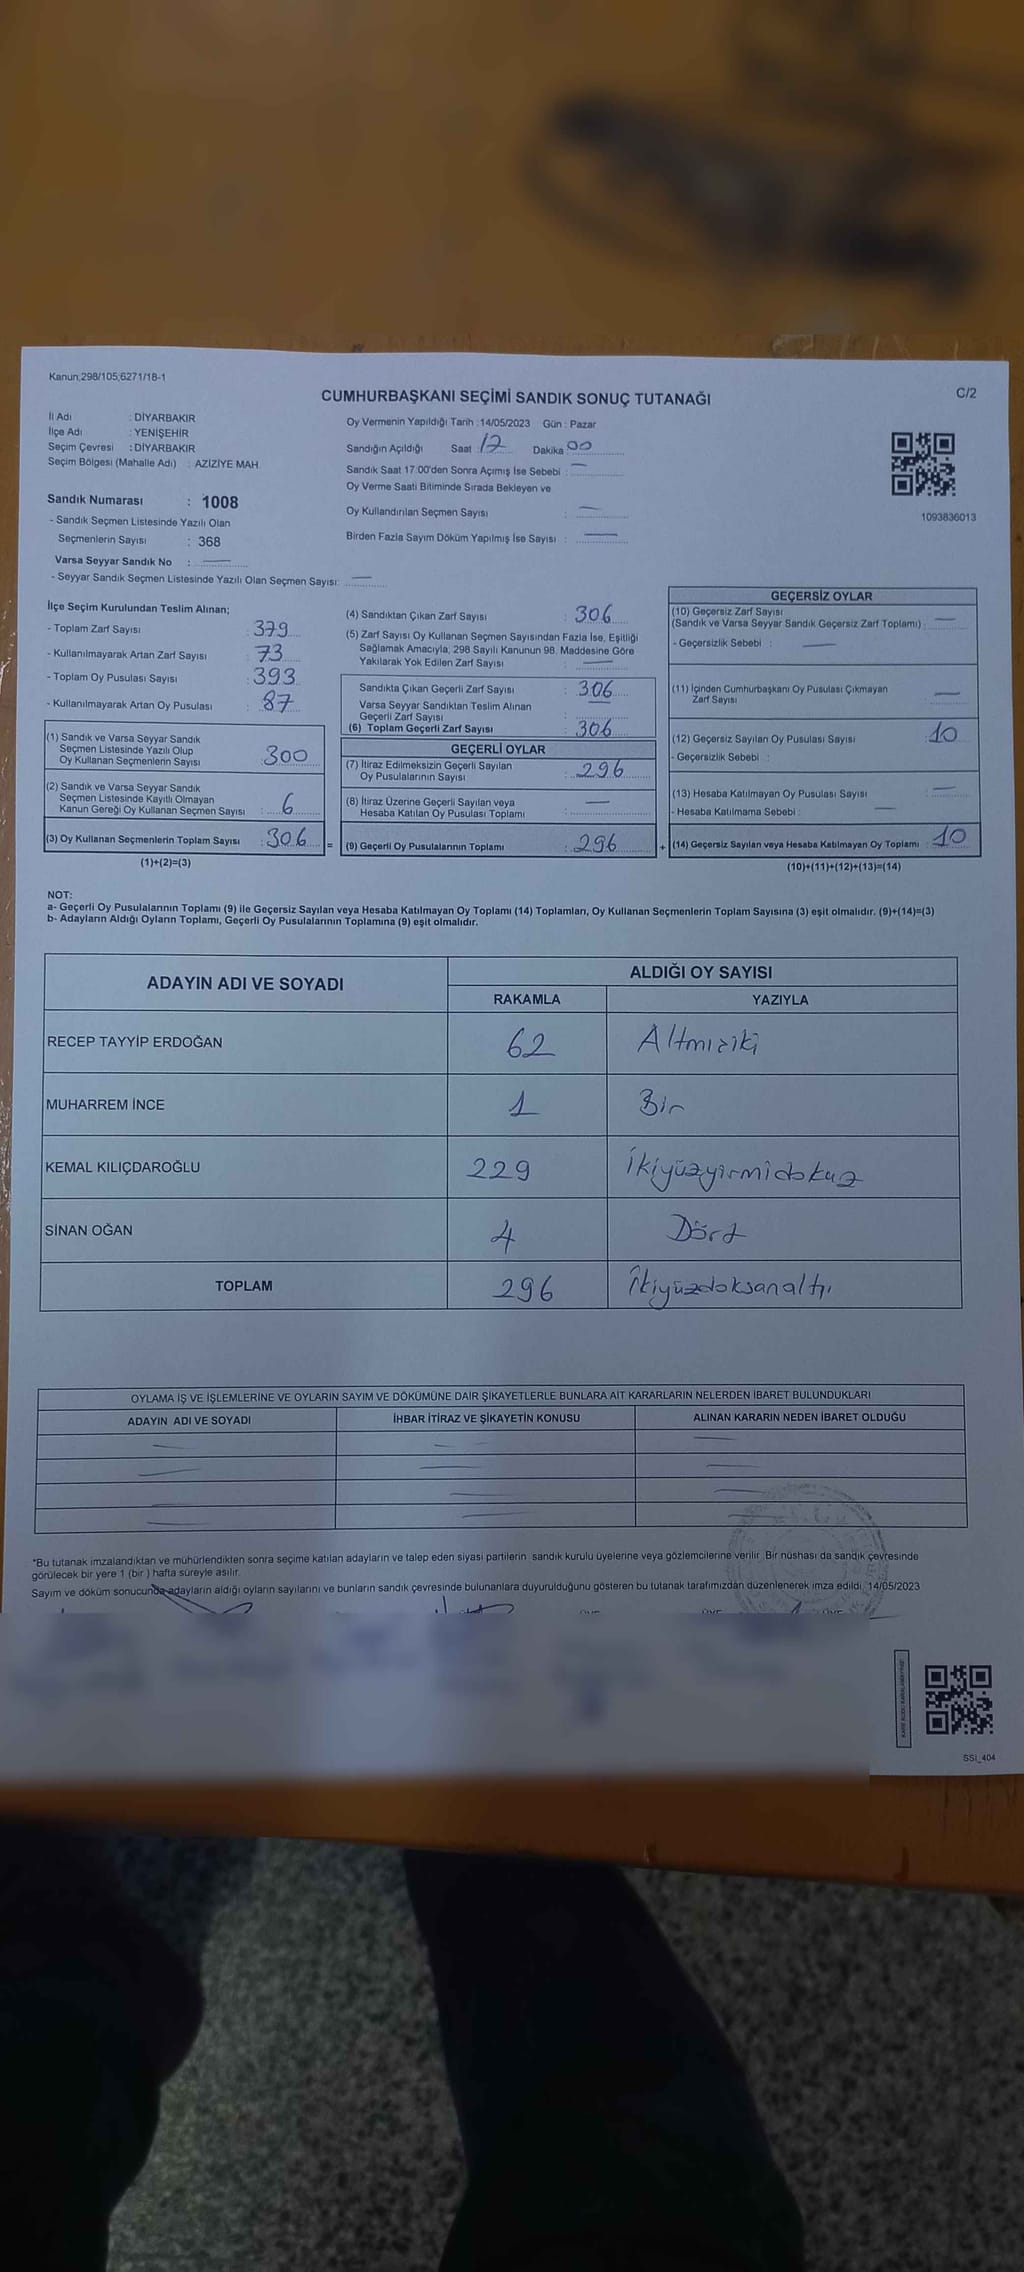 Kanun;298/105;6271/18-1
CUMHURBAŞKANI SEÇİMİ SANDIK SONUÇ TUTANAĞI
C/2
İl Adı : DİYARBAKIR
İlçe Adı : YENİŞEHİR
Seçim Çevresi : DİYARBAKIR
Seçim Bölgesi (Mahalle Adı) : AZİZİYE MAH.
Sandık Numarası : 1008
- Sandık Seçmen Listesinde Yazılı Olan
Seçmenlerin Sayısı : 368
Varsa Seyyar Sandık No : —
- Seyyar Sandık Seçmen Listesinde Yazılı Olan Seçmen Sayısı: —
Oy Vermenin Yapıldığı Tarih : 14/05/2023 Gün : Pazar
Sandığın Açıldığı Saat : 17 Dakika : 00
Sandık Saat 17:00'den Sonra Açımış İse Sebebi : —
Oy Verme Saati Bitiminde Sırada Bekleyen ve
Oy Kullandırılan Seçmen Sayısı : —
Birden Fazla Sayım Döküm Yapılmış İse Sayısı : —
1093836013
İlçe Seçim Kurulundan Teslim Alınan;
- Toplam Zarf Sayısı : 379
- Kullanılmayarak Artan Zarf Sayısı : 73
- Toplam Oy Pusulası Sayısı : 393
- Kullanılmayarak Artan Oy Pusulası : 87
(1) Sandık ve Varsa Seyyar Sandık
Seçmen Listesinde Yazılı Olup
Oy Kullanan Seçmenlerin Sayısı : 300
(2) Sandık ve Varsa Seyyar Sandık
Seçmen Listesinde Kayıtlı Olmayan
Kanun Gereği Oy Kullanan Seçmen Sayısı : 6
(3) Oy Kullanan Seçmenlerin Toplam Sayısı : 306
(1)+(2)=(3)
=
(4) Sandıktan Çıkan Zarf Sayısı : 306
(5) Zarf Sayısı Oy Kullanan Seçmen Sayısından Fazla İse, Eşitliği
Sağlamak Amacıyla, 298 Sayılı Kanunun 98. Maddesine Göre
Yakılarak Yok Edilen Zarf Sayısı : —
Sandıkta Çıkan Geçerli Zarf Sayısı : 306
Varsa Seyyar Sandıktan Teslim Alınan
Geçerli Zarf Sayısı : —
(6) Toplam Geçerli Zarf Sayısı : 306
GEÇERLİ OYLAR
(7) İtiraz Edilmeksizin Geçerli Sayılan
Oy Pusulalarının Sayısı : 296
(8) İtiraz Üzerine Geçerli Sayılan veya
Hesaba Katılan Oy Pusulası Toplamı : —
(9) Geçerli Oy Pusulalarının Toplamı : 296
+
GEÇERSİZ OYLAR
(10) Geçersiz Zarf Sayısı
(Sandık ve Varsa Seyyar Sandık Geçersiz Zarf Toplamı) : —
- Geçersizlik Sebebi : —
(11) İçinden Cumhurbaşkanı Oy Pusulası Çıkmayan
Zarf Sayısı : —
(12) Geçersiz Sayılan Oy Pusulası Sayısı : 10
- Geçersizlik Sebebi :
(13) Hesaba Katılmayan Oy Pusulası Sayısı : —
- Hesaba Katılmama Sebebi : —
(14) Geçersiz Sayılan veya Hesaba Katılmayan Oy Toplamı : 10
(10)+(11)+(12)+(13)=(14)
NOT:
a- Geçerli Oy Pusulalarının Toplamı (9) ile Geçersiz Sayılan veya Hesaba Katılmayan Oy Toplamı (14) Toplamları, Oy Kullanan Seçmenlerin Toplam Sayısına (3) eşit olmalıdır. (9)+(14)=(3)
b- Adayların Aldığı Oyların Toplamı, Geçerli Oy Pusulalarının Toplamına (9) eşit olmalıdır.
ADAYIN ADI VE SOYADI ALDIĞI OY SAYISI
RAKAMLA YAZIYLA
RECEP TAYYİP ERDOĞAN 62 Altmışiki
MUHARREM İNCE 1 Bir
KEMAL KILIÇDAROĞLU 229 İkiyüzyirmidokuz
SİNAN OĞAN 4 Dört
TOPLAM 296 İkiyüzdoksanaltı
OYLAMA İŞ VE İŞLEMLERİNE VE OYLARIN SAYIM VE DÖKÜMÜNE DAİR ŞİKAYETLERLE BUNLARA AİT KARARLARIN NELERDEN İBARET BULUNDUKLARI
ADAYIN ADI VE SOYADI İHBAR İTİRAZ VE ŞİKAYETİN KONUSU ALINAN KARARIN NEDEN İBARET OLDUĞU
*Bu tutanak imzalandıktan ve mühürlendikten sonra seçime katılan adayların ve talep eden siyasi partilerin sandık kurulu üyelerine veya gözlemcilerine verilir. Bir nüshası da sandık çevresinde
görülecek bir yere 1 (bir ) hafta süreyle asılır.
Sayım ve döküm sonucunda adayların aldığı oyların sayılarını ve bunların sandık çevresinde bulunanlara duyurulduğunu gösteren bu tutanak tarafımızdan düzenlenerek imza edildi. 14/05/2023
SSI_404